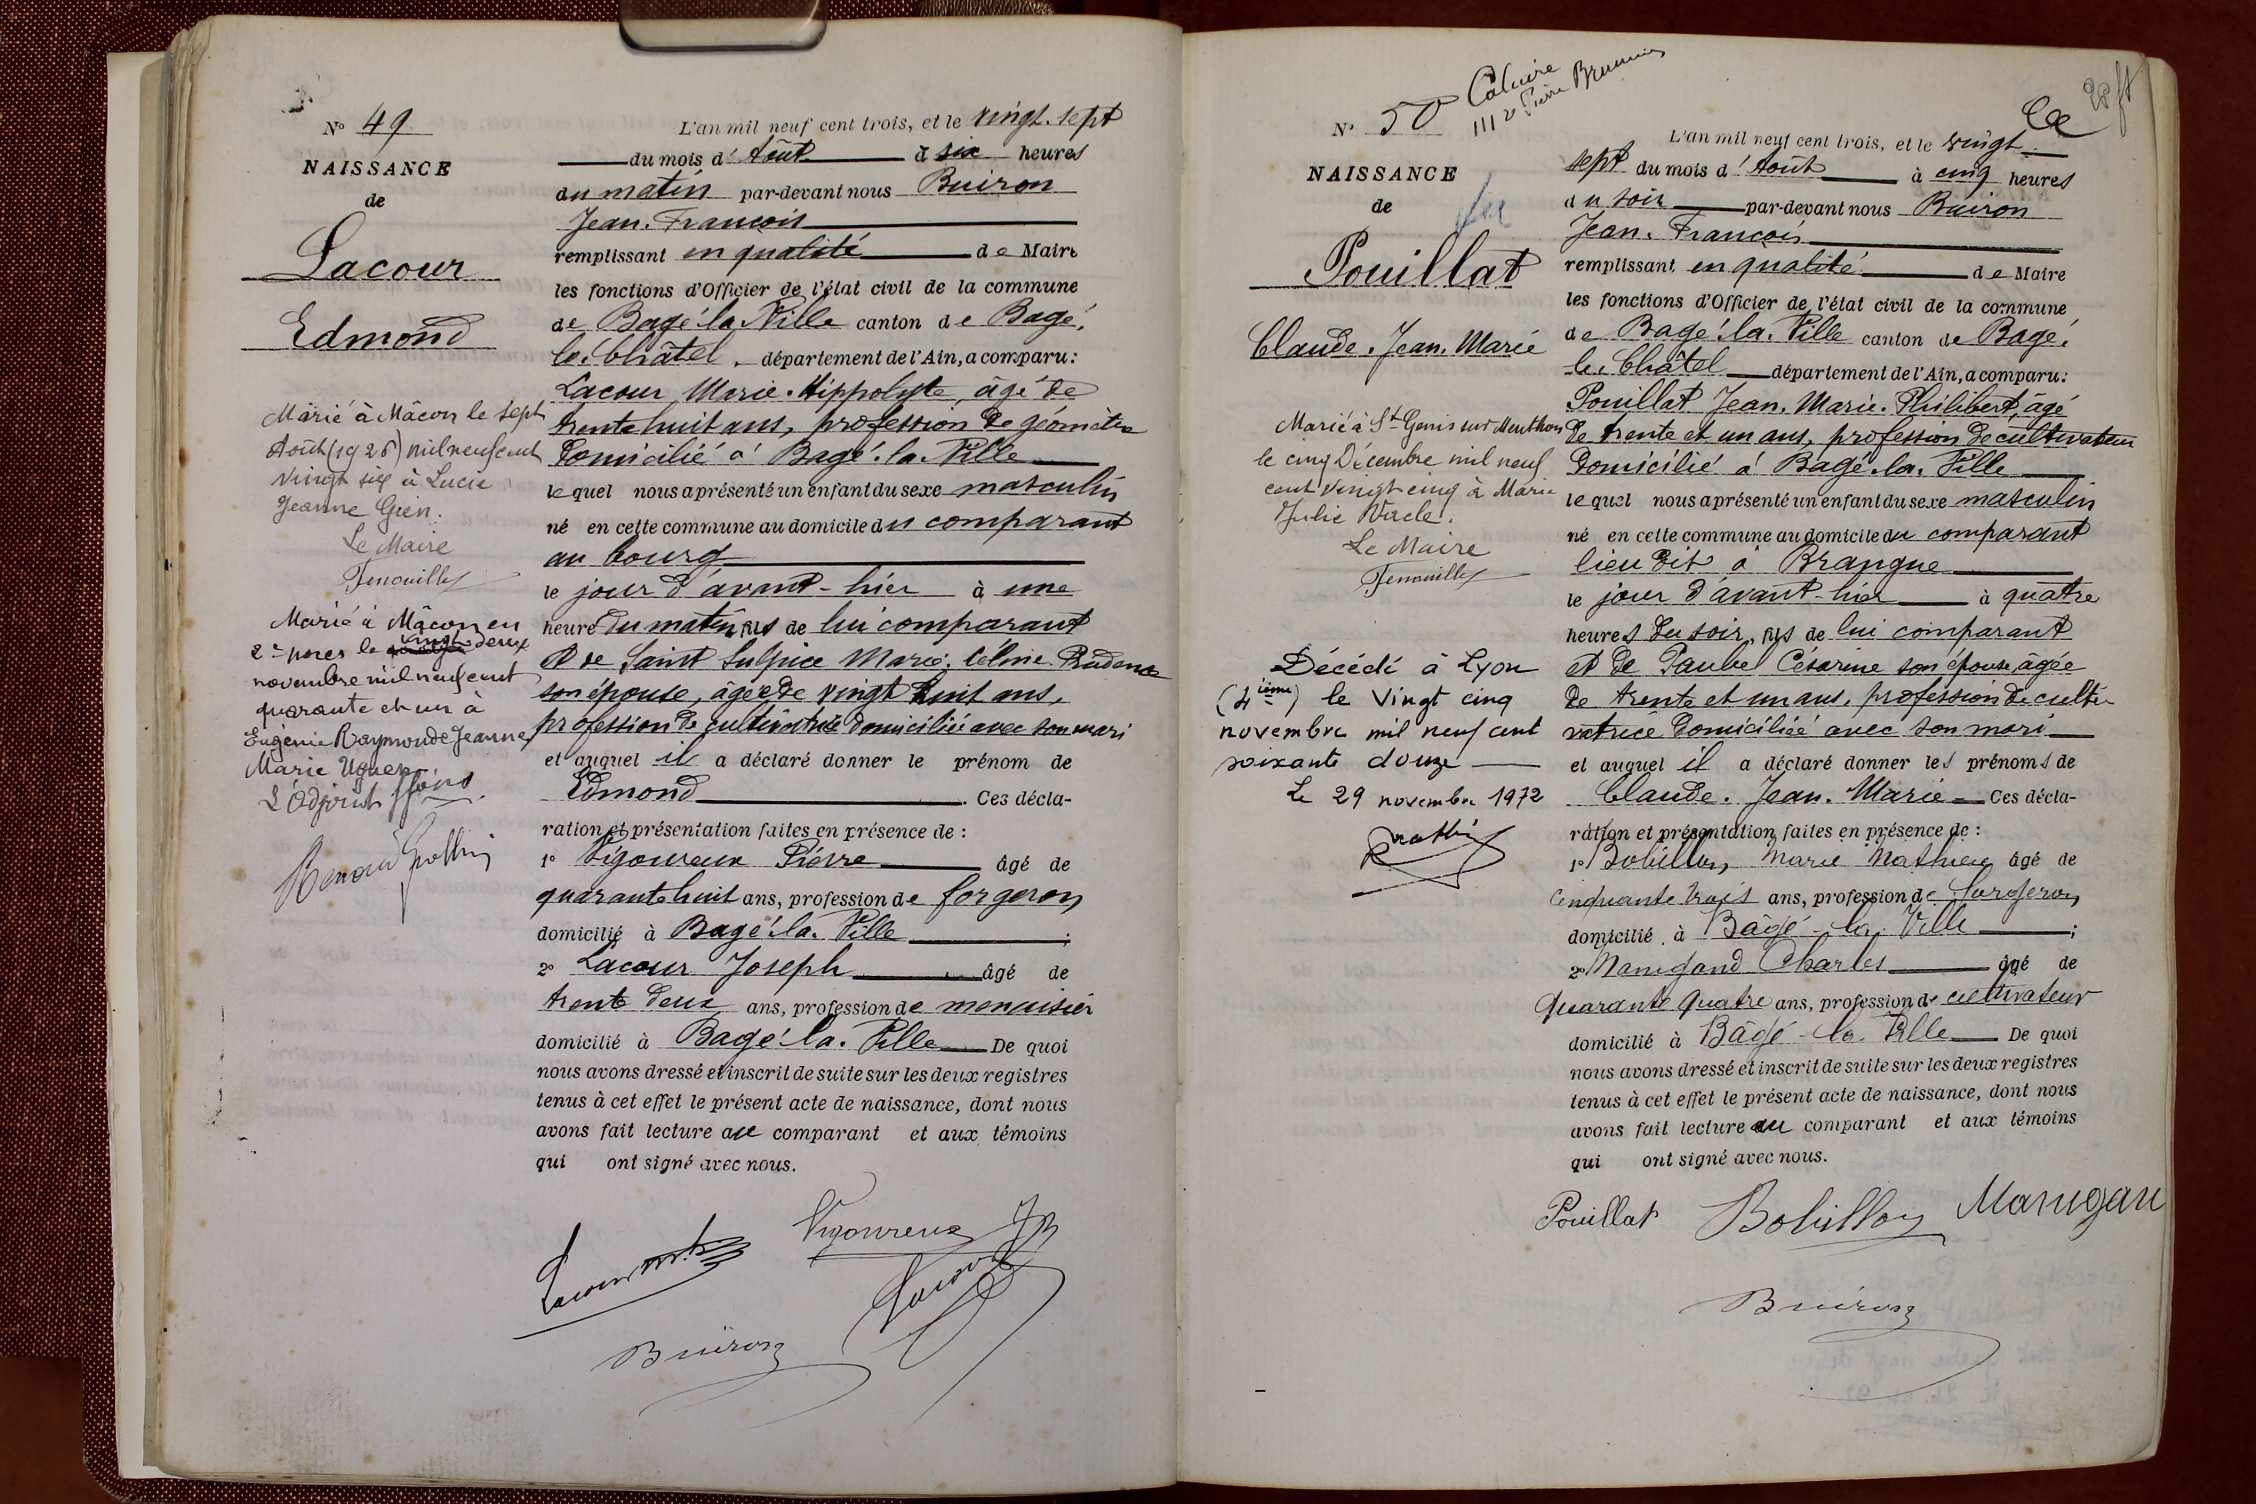 N° 49
NAISSANCE
de
Lacour
Edmond
Marié à Mâcon le sept
Août (1926) mil neuf cent
vingt six à Lucie
Jeanne Gien.
Le Maire
Fenouillet
Marié à Mâcon en
2es noces le vingt deux
novembre mil neuf cent
quarante et un à
Eugénie Raymonde Jeanne
Marie Uguen
L'Adjoint
L'an mil neuf cent trois, et le vingt-sept
du mois d'Août à six heures
du matin par-devant nous Buiron
Jean-François
remplissant en qualité de Maire
les fonctions d'Officier de l'état civil de la commune
de Bagé-la-Ville canton de Bagé-
le-Châtel, département de l'Ain, a comparu:
Lacour Marie-Hippolyte, âgé de
trente huit ans, profession de géomètre
domicilié à Bagé-la-Ville
lequel nous a présenté un enfant du sexe masculin
né en cette commune au domicile du comparant
au bourg
le jour d'avant-hier à une
heure du matin, fils de lui comparant
et de Saint Sulpice Marie-Céline
son épouse, âgée de vingt huit ans,
profession de cultivatrice domiciliée avec son mari
et auquel il a déclaré donner le prénom de
Edmond. Ces décla-
ration et présentation faites en présence de :
1° Vigoureux Pierre âgé de
quarante huit ans, profession de forgeron
domicilié à Bagé-la-Ville ;
2° Lacour Joseph âgé de
trente deux ans, profession de menuisier
domicilié à Bagé-la-Ville De quoi
nous avons dressé et inscrit de suite sur les deux registres
tenus à cet effet le présent acte de naissance, dont nous
avons fait lecture au comparant et aux témoins
qui ont signé avec nous.
Lacour Vigoureux
Lacour
Buiron
Caluire
111 r Pierre Brunier
N° 50
NAISSANCE
de
Pouillat
Claude-Jean-Marie
Marié à St Genis sur Menthon
le cinq Décembre mil neuf
cent vingt cinq à Marie
Julie
Le Maire
Fenouillet
Décédé à Lyon
(4ième) le Vingt cinq
novembre mil neuf cent
soixante douze
Le 29 novembre 1972
L'an mil neuf cent trois, et le vingt-
sept du mois d'Août à cinq heures
du soir par-devant nous Buiron
Jean-François
remplissant en qualité de Maire
les fonctions d'Officier de l'état civil de la commune
de Bagé-la-Ville canton de Bagé-
le-Châtel département de l'Ain, a comparu:
Pouillat Jean-Marie-Philibert, âgé
de trente et un ans, profession de cultivateur
domicilié à Bagé-la-Ville
lequel nous a présenté un enfant du sexe masculin
né en cette commune au domicile du comparant
lieu dit à Brangue
le jour d'avant-hier à quatre
heures du soir, fils de lui comparant
et de Paubel Césarine son épouse, âgée
de trente et un ans, profession de culti-
vatrice domiciliée avec son mari
et auquel il a déclaré donner les prénoms de
Claude-Jean-Marie Ces décla-
ration et présentation faites en présence de :
1° Bobillon Marie Mathieu âgé de
Cinquante trois ans, profession de forgeron
domicilié à Bâgé-la-Ville ;
2° Manigand Charles âgé de
Quarante quatre ans, profession de cultivateur
domicilié à Bâgé-la-Ville De quoi
nous avons dressé et inscrit de suite sur les deux registres
tenus à cet effet le présent acte de naissance, dont nous
avons fait lecture au comparant et aux témoins
qui ont signé avec nous.
Pouillat Bobillon Manigan
Buiron